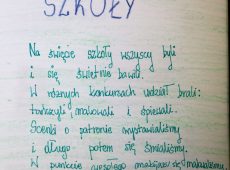 SZKOŁY
Na święcie szkoły wszyscy byli
i się świetnie bawili.
W różnych konkursach udział brali:
tańczyli, malowali i śpiewali.
Scenki o patronie wystawialiśmy
i długo potem się śmialiśmy.
W punkcie się malowaliśmy